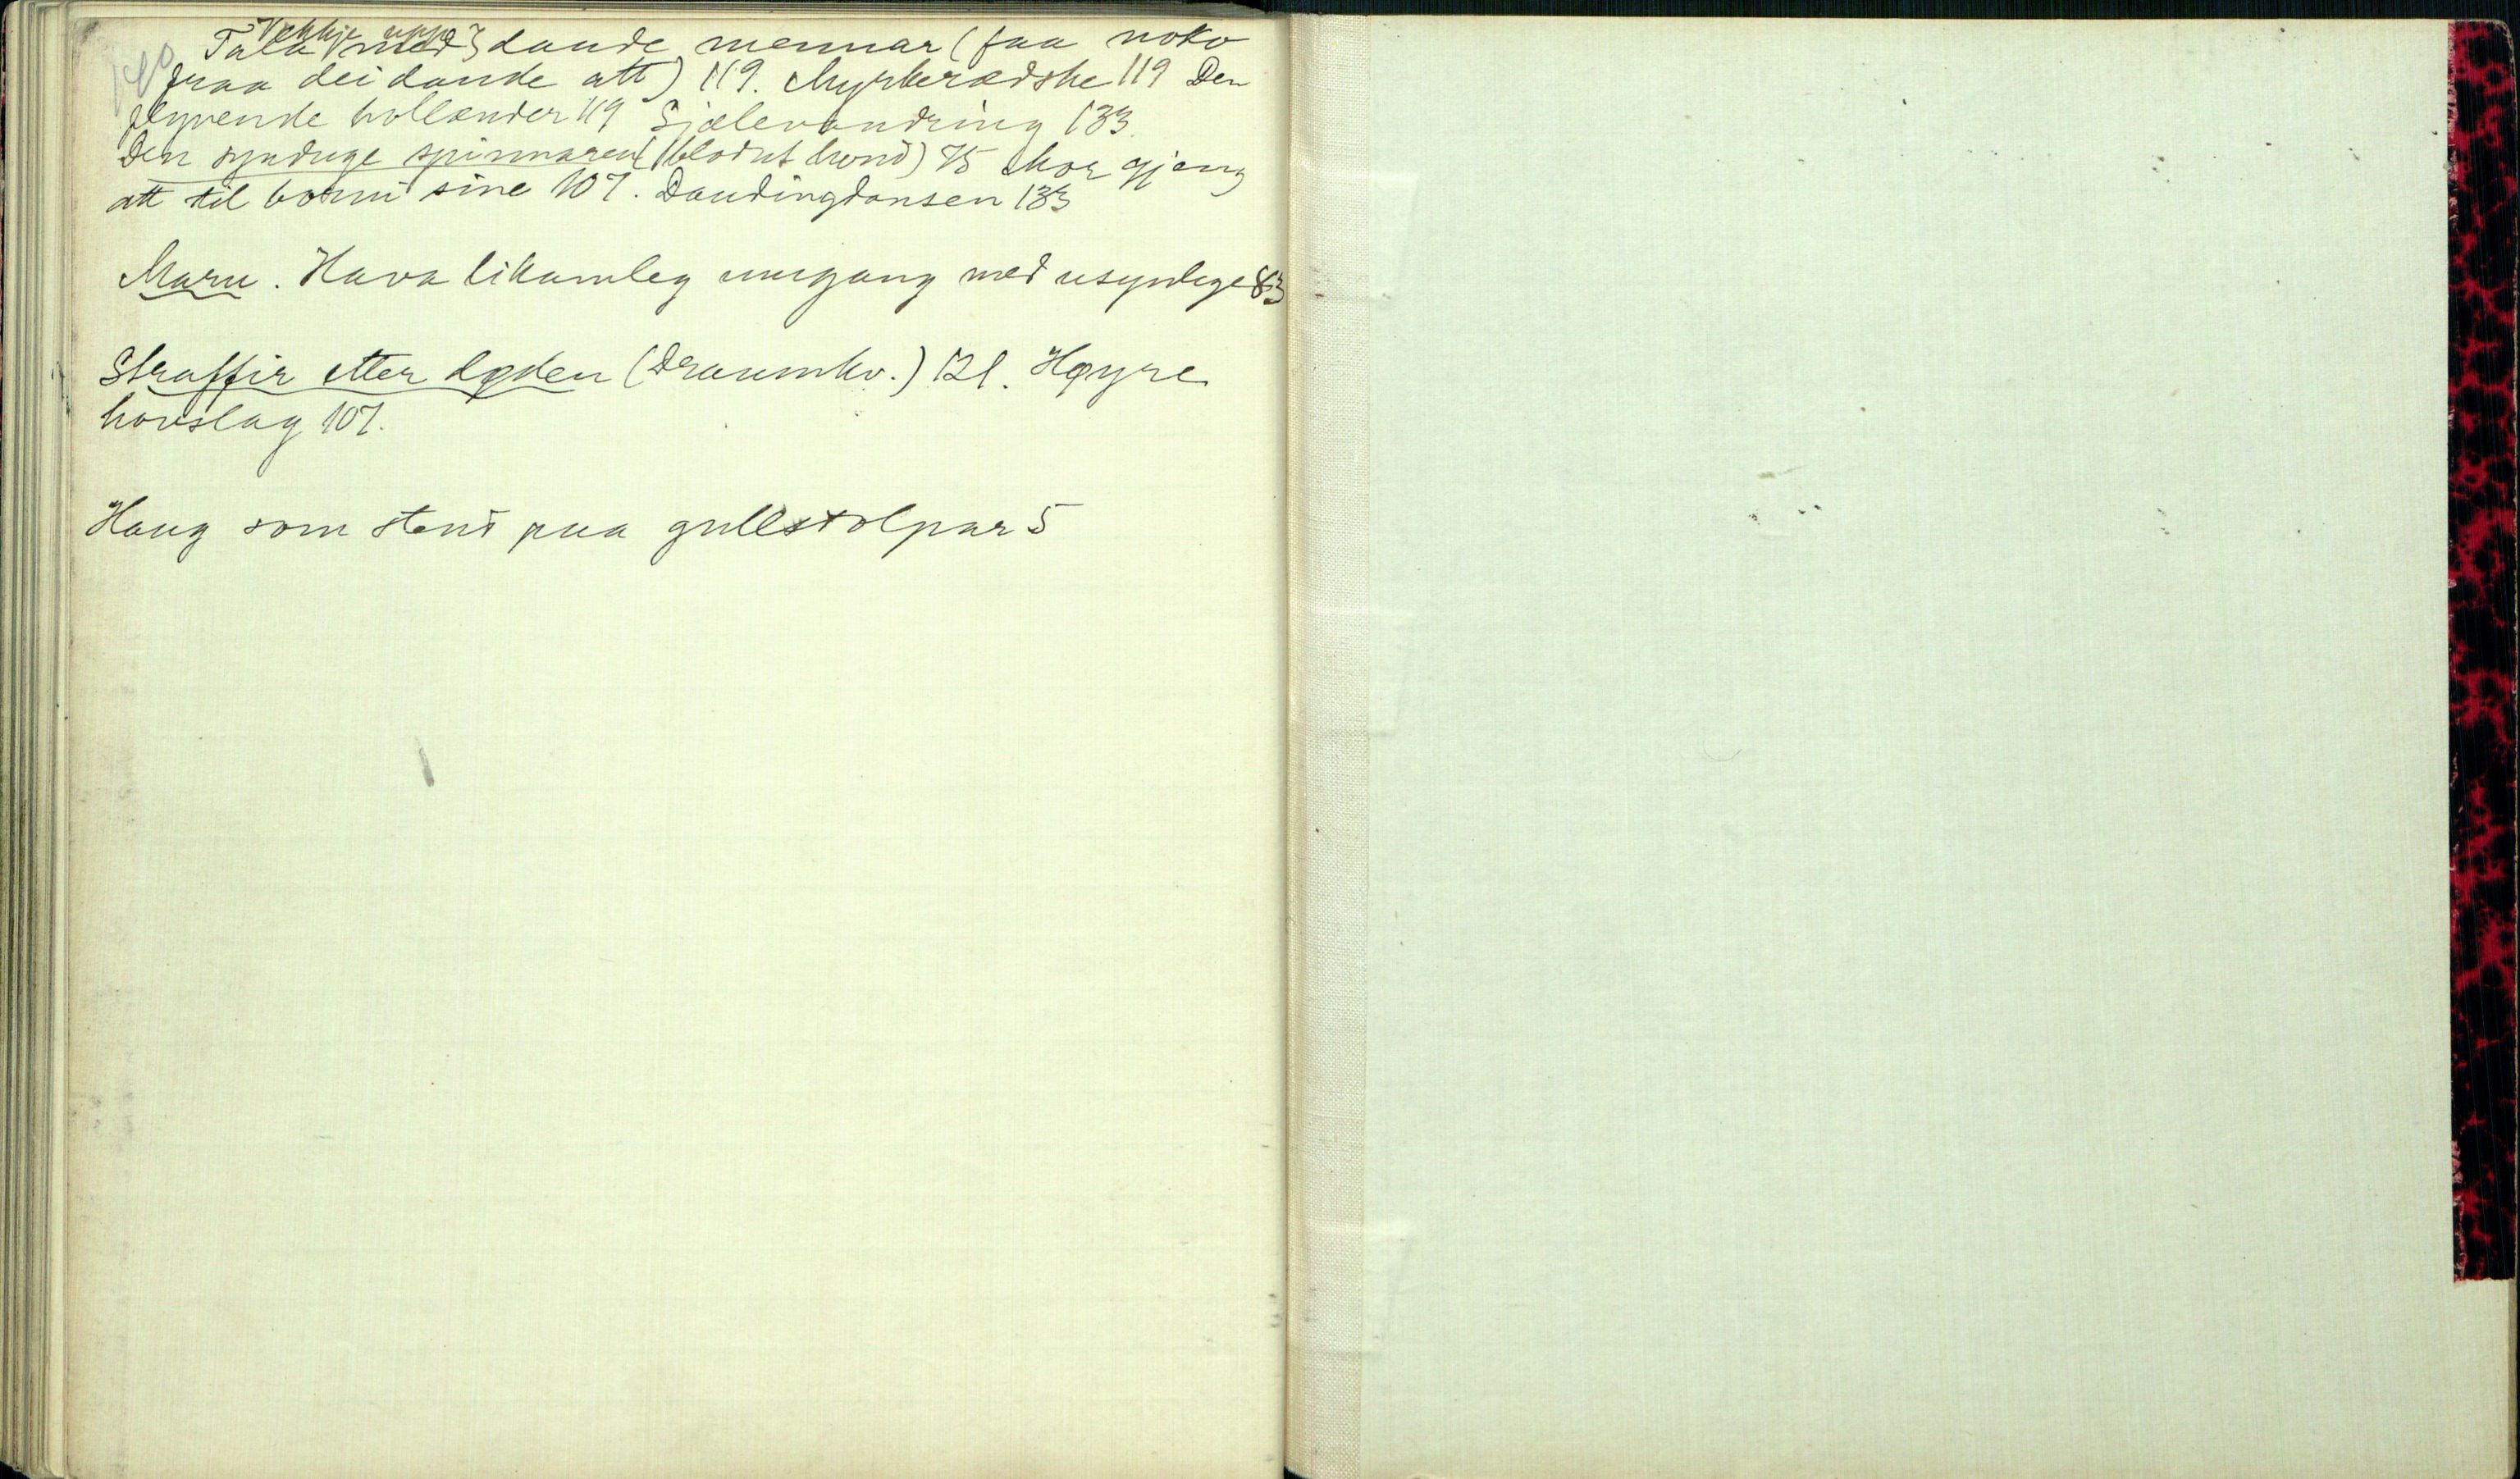 Vekkje upp
Tala med daude mennar (faa noko
fraa dei daude att) 119. Myrkerædske 119 Den
flyvende hollender 119 Sjælevandring 133.
Den synduge spinnaren (blodut hond) 75 Mor gjeng
att til borni sine 107. Daudingdansen 133
Maru. Hava likamleg umgang med usynlege 83
Straffir etter døden (Draumkv.) 121. Høyre
hovslag 107.
Haug som stend paa gullstolpar 5